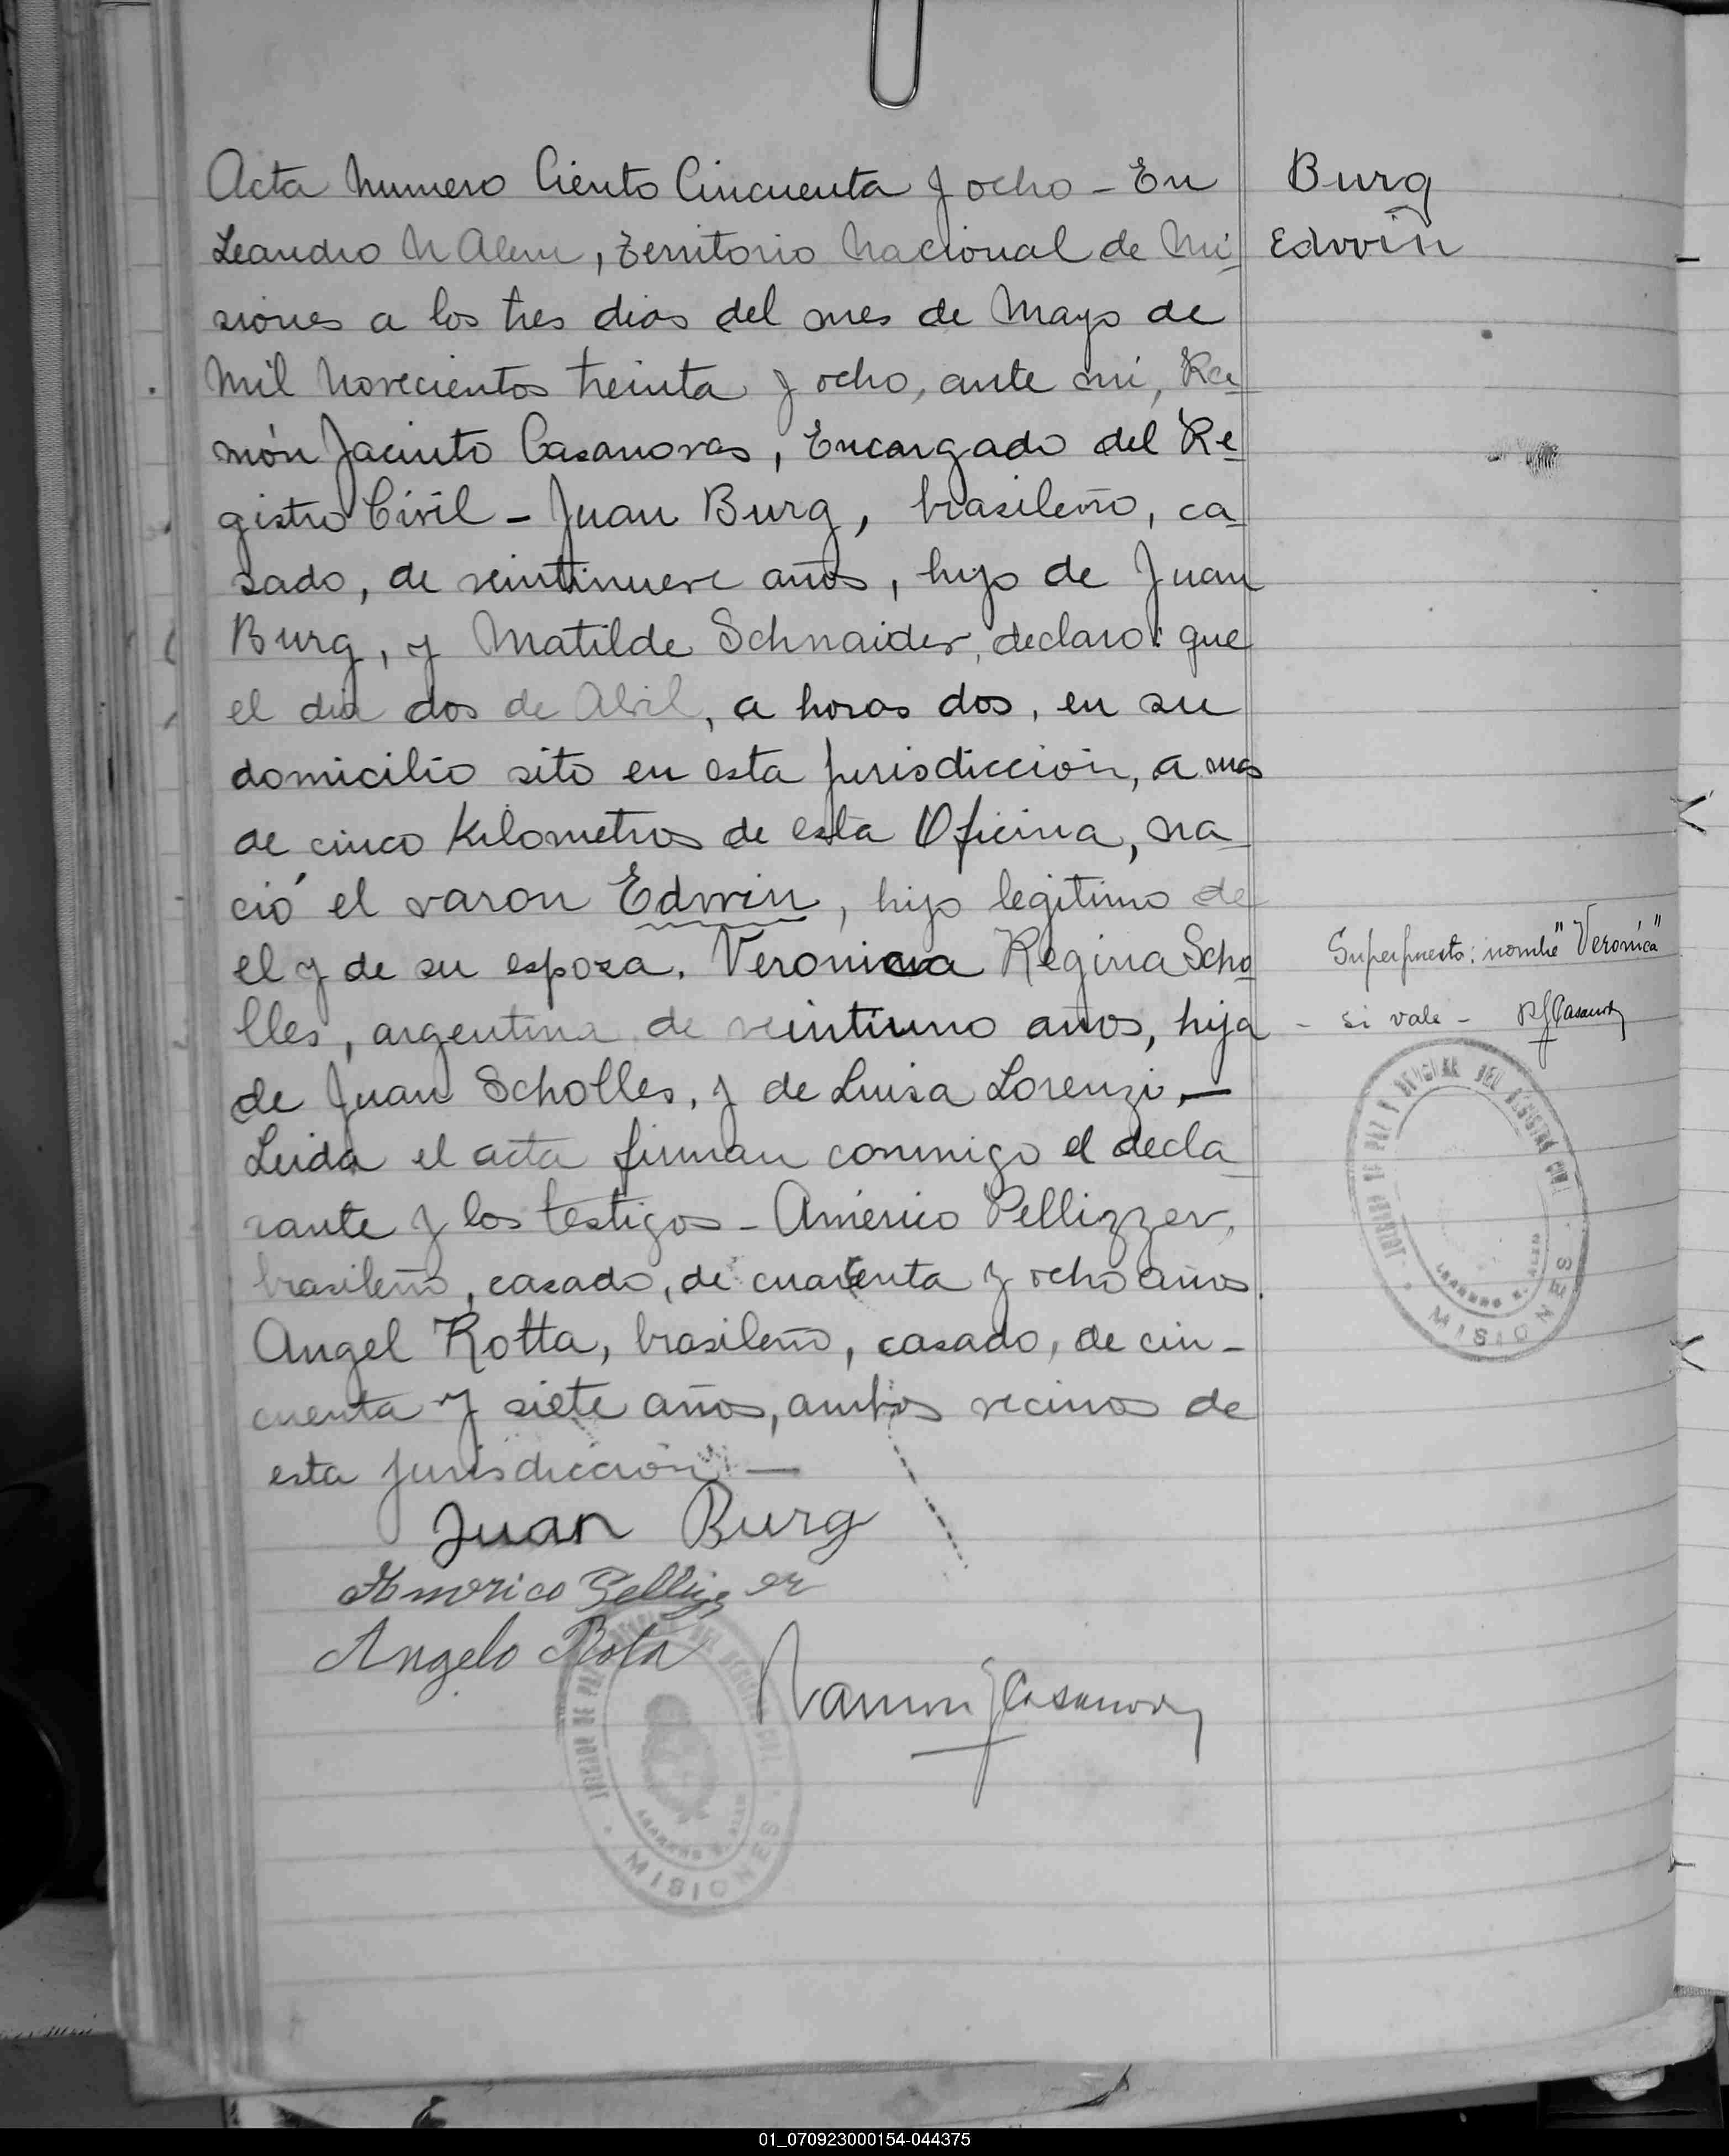 Acta Numero Ciento Cincuenta y ocho - En
Leandro N Alem, Territorio Nacional de Mi-
siones a los tres dias del mes de Mayo de
Mil Novecientos treinta y ocho, ante mi, Ra-
món Jacinto Casanovas, Encargado del Re-
gistro Civil - Juan Burg, brasileño, ca-
sado, de veintinueve años, hijo de Juan
Burg, y Matilde Schnaider, declaro: que
el dia dos de Abril, a horas dos, en su
domicilio sito en esta jurisdiccion, a mas
de cinco Kilometros de esta Oficina, na-
ció el varon Edwin, hijo legitimo de
el y de su esposa, Veronica Regina Scho-
lles, argentina de veintiuno años, hija
de Juan Scholles, y de Luisa Lorenzi, —
Leida el acta firman conmigo el decla-
rante y los testigos - Américo Pellizzer,
brasileño, casado, de cuarenta y ocho años.
Angel Rotta, brasileño, casado, de cin-
cuenta y siete años, ambos vecinos de
esta jurisdiccion —
Juan Burg
Americo Pellizzer
Angelo Rota
Ramon J Casanovas
Burg
Edwin
Superpuesto: nombre "Veronica"
- si vale - RJCasanovas
JUZGADO DE PAZ Y OFICINA DEL REGISTRO CIVIL
LEANDRO N. ALEM
· MISIONES ·
JUZGADO DE PAZ Y OFICINA DEL REGISTRO CIVIL
LEANDRO N. ALEM
· MISIONES ·
01_070923000154-044375